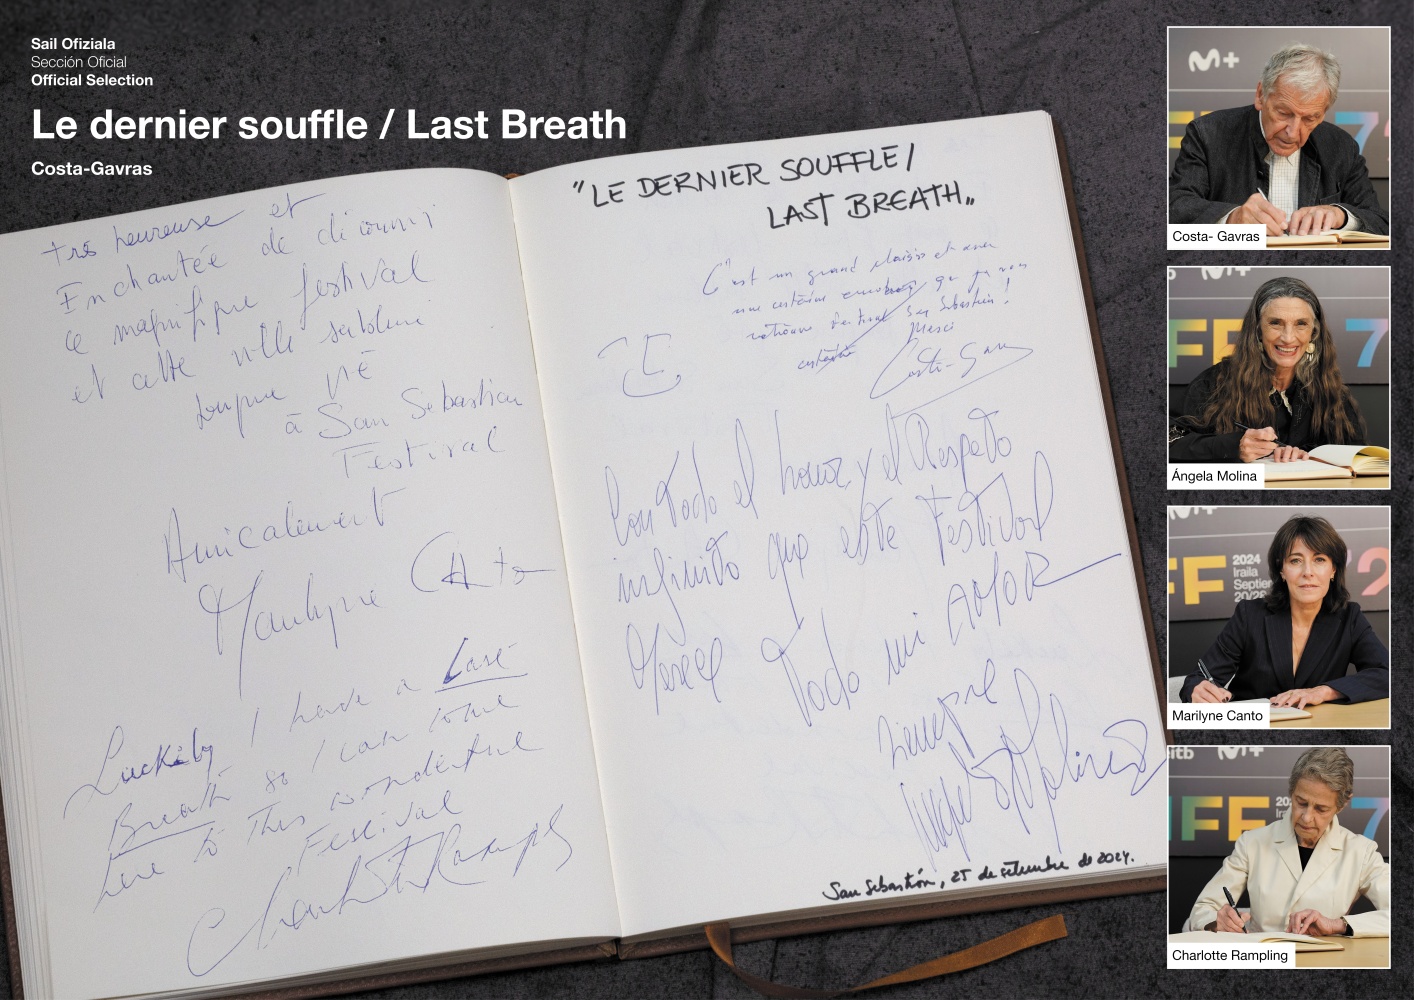 Sail Ofiziala
Sección Oficial
Official Selection
Le dernier souffle / Last Breath
Costa-Gavras
très heureuse et
Enchantée de
ce magnifique festival
et cette ville
à San Sebastian
Festival
Amicalement
Marilyne Canto
Luckily I have a Last
Breath so I can come
here to this wonderful
Festival
Charlotte Rampling
"LE DERNIER SOUFFLE/
LAST BREATH"
C'est un grand plaisir et avec
une certaine que
San Sebastien!
Merci
Costa-Gavras
Con todo el honor y el Respeto
infinito que este Festival
Merece Todo mi AMOR
siempre
Angela Molina
San Sebastián, 25 de setiembre de 2024.
M+
FF
7
Costa- Gavras
M+
FF
7
Ángela Molina
M+
FF
2024
Iraila
Septie
20/28
72
Marilyne Canto
eitb
M+
IFF
20
Ira
7
Charlotte Rampling